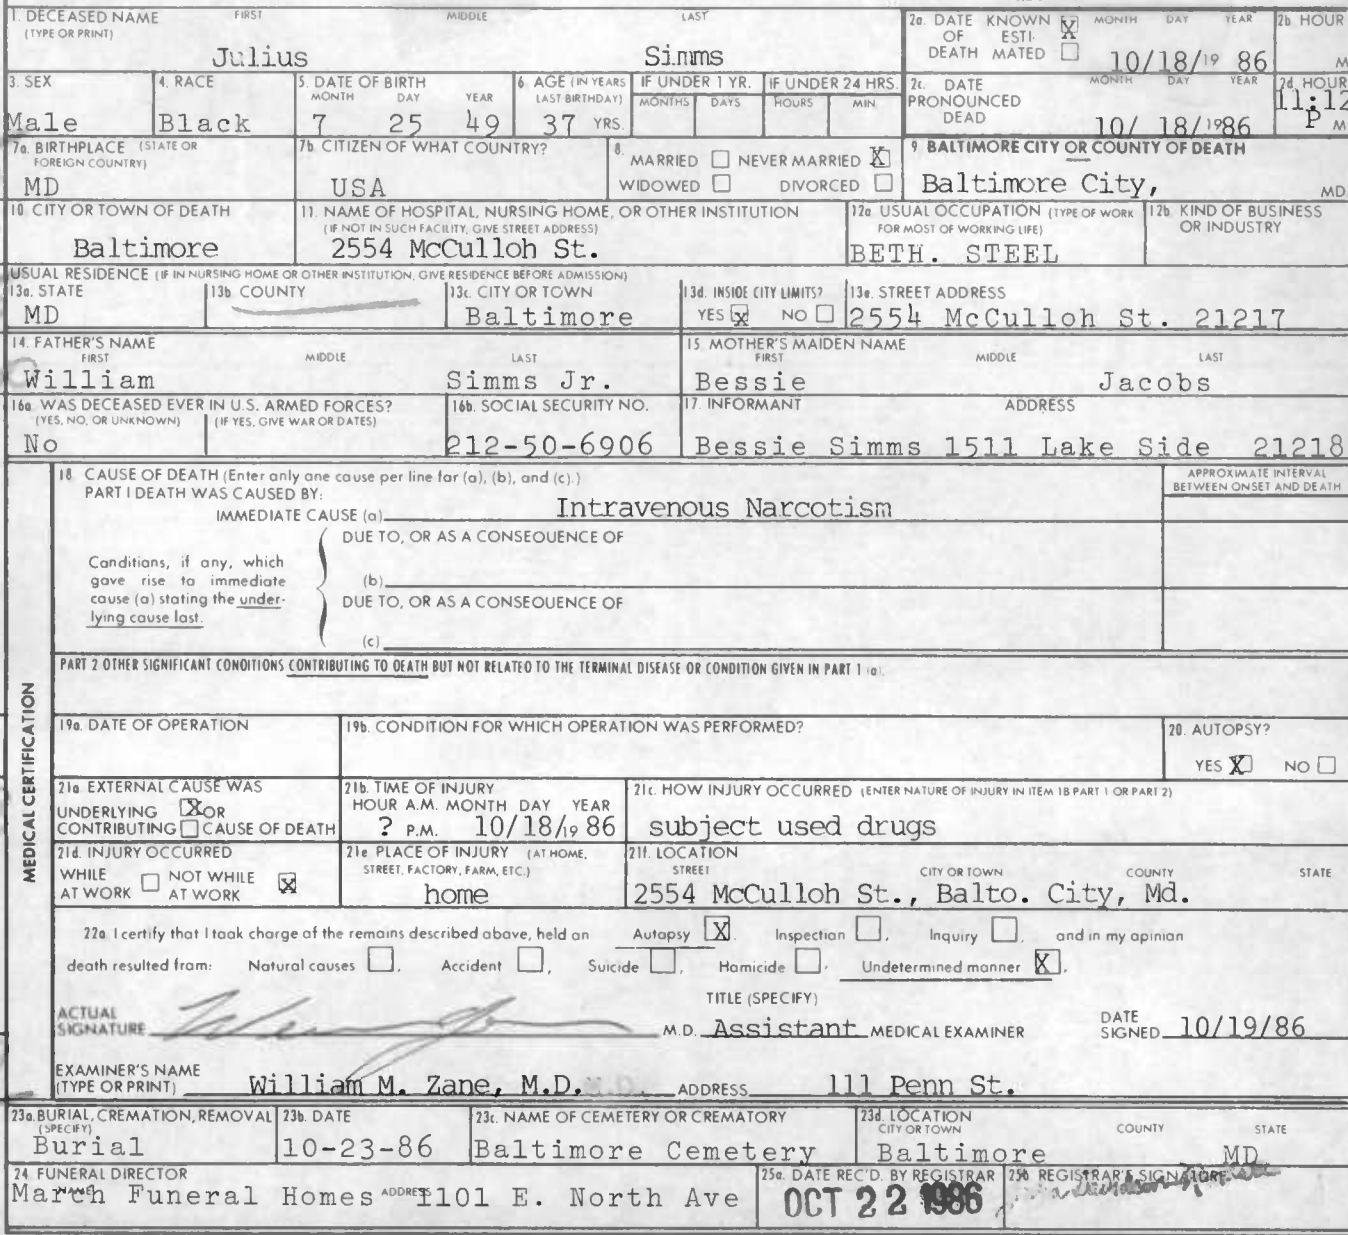 1. DECEASED NAME FIRST MIDDLE LAST
(TYPE OR PRINT)
Julius Simms
2a. DATE KNOWN X MONTH DAY YEAR
OF ESTI-
DEATH MATED
10/18/19 86
2b. HOUR
M
3. SEX
Male
4. RACE
Black
5. DATE OF BIRTH
MONTH DAY YEAR
7 25 49
6. AGE (IN YEARS
LAST BIRTHDAY)
37 YRS.
IF UNDER 1 YR.
MONTHS DAYS
IF UNDER 24 HRS.
HOURS MIN
2c. DATE MONTH DAY YEAR
PRONOUNCED
DEAD
10/ 18/1986
2d. HOUR
11:12
P M
7a. BIRTHPLACE (STATE OR
FOREIGN COUNTRY)
MD
7b. CITIZEN OF WHAT COUNTRY?
USA
8.
MARRIED NEVER MARRIED X
WIDOWED DIVORCED
9. BALTIMORE CITY OR COUNTY OF DEATH
Baltimore City, MD
10. CITY OR TOWN OF DEATH
Baltimore
11. NAME OF HOSPITAL, NURSING HOME, OR OTHER INSTITUTION
(IF NOT IN SUCH FACILITY, GIVE STREET ADDRESS)
2554 McCulloh St.
12a. USUAL OCCUPATION (TYPE OF WORK
FOR MOST OF WORKING LIFE)
BETH. STEEL
12b. KIND OF BUSINESS
OR INDUSTRY
USUAL RESIDENCE (IF IN NURSING HOME OR OTHER INSTITUTION, GIVE RESIDENCE BEFORE ADMISSION)
13a. STATE
MD
13b. COUNTY
13c. CITY OR TOWN
Baltimore
13d. INSIDE CITY LIMITS?
YES X NO
13e. STREET ADDRESS
2554 McCulloh St. 21217
14. FATHER'S NAME
FIRST MIDDLE LAST
William Simms Jr.
15. MOTHER'S MAIDEN NAME
FIRST MIDDLE LAST
Bessie Jacobs
16a. WAS DECEASED EVER IN U.S. ARMED FORCES?
(YES, NO, OR UNKNOWN) (IF YES, GIVE WAR OR DATES)
No
16b. SOCIAL SECURITY NO.
212-50-6906
17. INFORMANT ADDRESS
Bessie Simms 1511 Lake Side 21218
MEDICAL CERTIFICATION
18 CAUSE OF DEATH (Enter only one cause per line for (a), (b), and (c).)
PART I DEATH WAS CAUSED BY:
IMMEDIATE CAUSE (a) Intravenous Narcotism
APPROXIMATE INTERVAL
BETWEEN ONSET AND DEATH
DUE TO, OR AS A CONSEQUENCE OF
Conditions, if any, which
gave rise to immediate
cause (a) stating the under-
lying cause last.
(b)
DUE TO, OR AS A CONSEQUENCE OF
(c)
PART 2 OTHER SIGNIFICANT CONDITIONS CONTRIBUTING TO DEATH BUT NOT RELATED TO THE TERMINAL DISEASE OR CONDITION GIVEN IN PART 1 (a).
19a. DATE OF OPERATION
19b. CONDITION FOR WHICH OPERATION WAS PERFORMED?
20. AUTOPSY?
YES X NO
21a. EXTERNAL CAUSE WAS
UNDERLYING X OR
CONTRIBUTING CAUSE OF DEATH
21b. TIME OF INJURY
HOUR A.M. MONTH DAY YEAR
? P.M. 10/18/19 86
21c. HOW INJURY OCCURRED (ENTER NATURE OF INJURY IN ITEM 18 PART 1 OR PART 2)
subject used drugs
21d. INJURY OCCURRED
WHILE NOT WHILE X
AT WORK AT WORK
21e PLACE OF INJURY (AT HOME,
STREET, FACTORY, FARM, ETC.)
home
21f. LOCATION
STREET CITY OR TOWN COUNTY STATE
2554 McCulloh St., Balto. City, Md.
22a. I certify that I took charge of the remains described above, held an Autopsy X. Inspection , Inquiry , and in my opinion
death resulted from: Natural causes , Accident , Suicide , Homicide . Undetermined manner X.
TITLE (SPECIFY)
ACTUAL
SIGNATURE M.D. Assistant MEDICAL EXAMINER
DATE
SIGNED 10/19/86
EXAMINER'S NAME
(TYPE OR PRINT) William M. Zane, M.D. ADDRESS 111 Penn St.
23a. BURIAL, CREMATION, REMOVAL
(SPECIFY)
Burial
23b. DATE
10-23-86
23c. NAME OF CEMETERY OR CREMATORY
Baltimore Cemetery
23d. LOCATION
CITY OR TOWN COUNTY STATE
Baltimore MD
24. FUNERAL DIRECTOR
NAME ADDRESS
March Funeral Homes 1101 E. North Ave
25a. DATE REC'D. BY REGISTRAR
OCT 22 1986
25b. REGISTRAR'S SIGNATURE